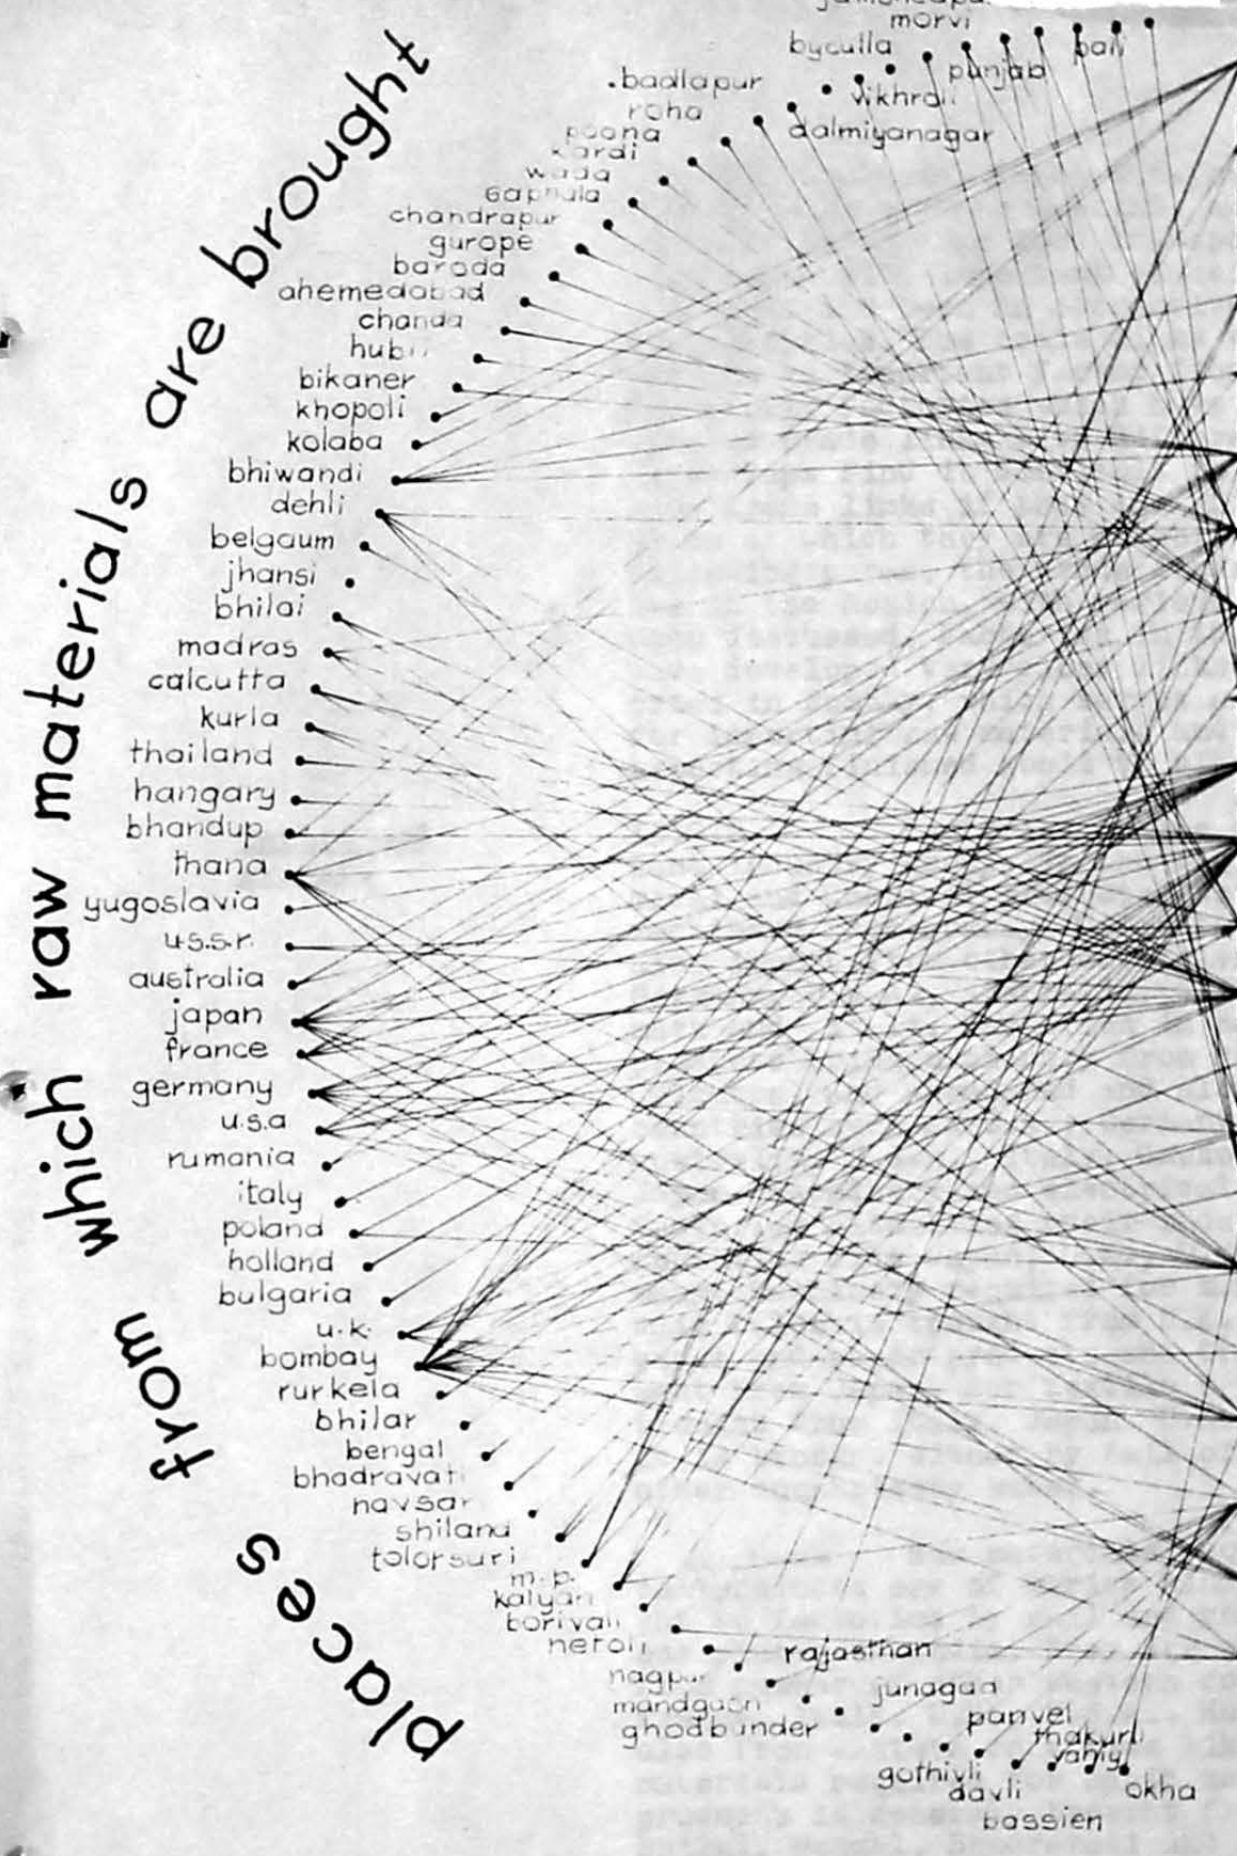 places from which raw materials are brought
morvi
byculla
pali
punjab
.badlapur
vikhroli
roha
dalmiyanagar
poona
kardi
wada
chandrapur
gurope
baroda
ahemedabad
chanda
bikaner
khopoli
kolaba
bhiwandi
dehli
belgaum
jhansi
bhilai
madras
calcutta
kurla
thailand
hangary
bhandup
thana
yugoslavia
u.s.s.r.
australia
japan
france
germany
u.s.a
rumania
italy
poland
holland
bulgaria
u.k.
bombay
rurkela
bhilar
bengal
bhadravati
navsar
shiland
tolorsuri
m.p.
kalyan
borivali
neroli
rajasthan
nagpur
junagad
mandgaon
panvel
ghodbunder
thakurli
gothivli
davli
okha
bassien